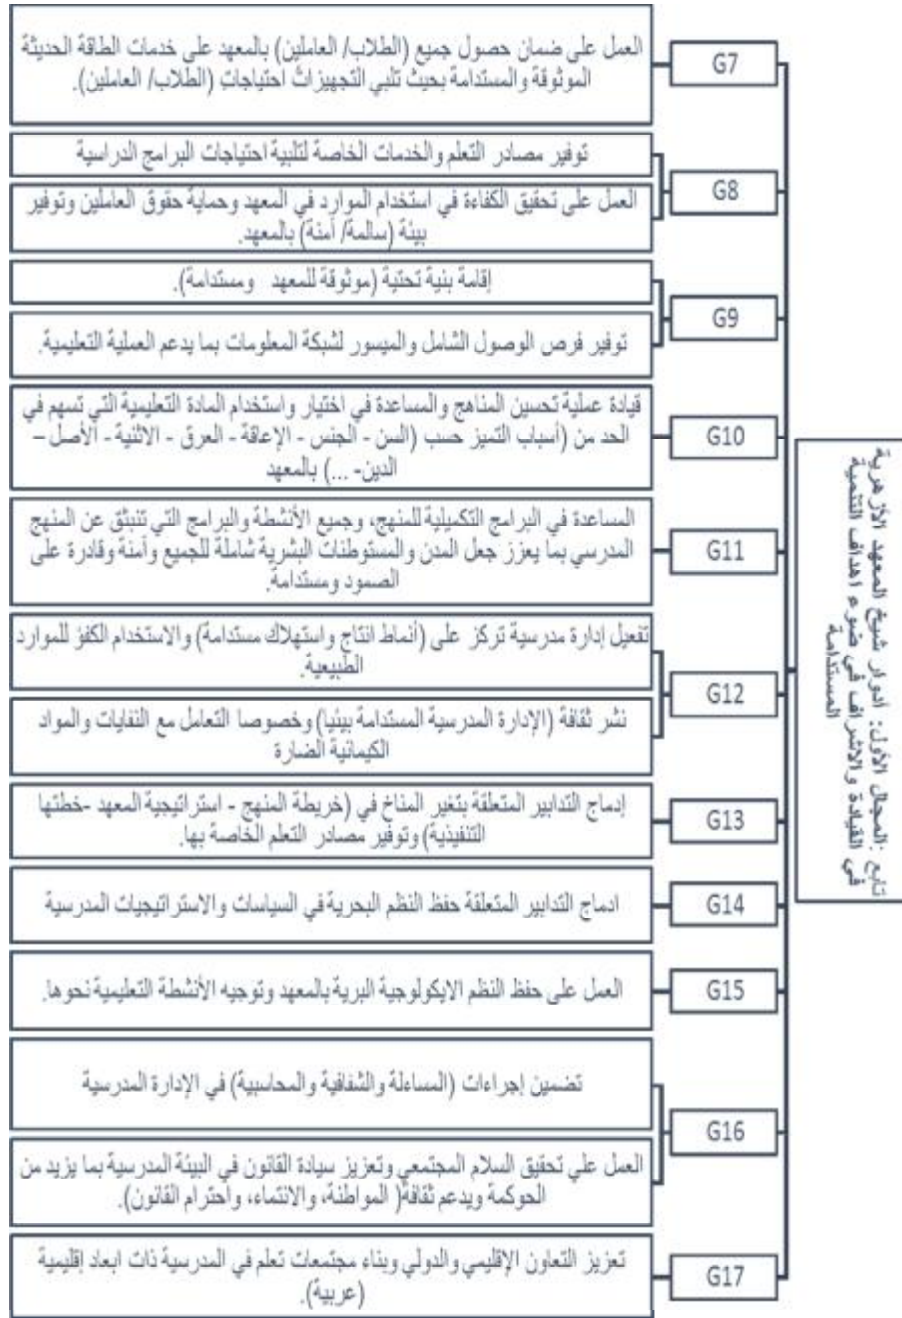 تابع :المجال الأول: أدوار شيخ المعهد الازهرية
في القيادة والاشراف في ضوء اهداف التنمية
المستدامة
G7
العمل على ضمان حصول جميع (الطلاب/ العاملين) بالمعهد على خدمات الطاقة الحديثة
الموثوقة والمستدامة بحيث تلبي التجهيزات احتياجات (الطلاب/ العاملين).
G8
توفير مصادر التعلم والخدمات الخاصة لتلبية احتياجات البرامج الدراسية
العمل على تحقيق الكفاءة في استخدام الموارد في المعهد وحماية حقوق العاملين وتوفير
بيئة (سالمة/ آمنة) بالمعهد.
G9
إقامة بنية تحتية (موثوقة للمعهد ومستدامة).
توفير فرص الوصول الشامل والميسور لشبكة المعلومات بما يدعم العملية التعليمية.
G10
قيادة عملية تحسين المناهج والمساعدة في اختيار واستخدام المادة التعليمية التي تسهم في
الحد من (أسباب التميز حسب (السن - الجنس - الإعاقة - العرق - الاثنية - الأصل –
الدين- ...) بالمعهد
G11
المساعدة في البرامج التكميلية للمنهج، وجميع الأنشطة والبرامج التي تنبثق عن المنهج
المدرسي بما يعزز جعل المدن والمستوطنات البشرية شاملة للجميع وآمنة وقادرة على
الصمود ومستدامة.
G12
تفعيل إدارة مدرسية تركز على (أنماط انتاج واستهلاك مستدامة) والاستخدام الكفؤ للموارد
الطبيعية.
نشر ثقافة (الإدارة المدرسية المستدامة بيئيا) وخصوصا التعامل مع النفايات والمواد
الكيمائية الضارة
G13
إدماج التدابير المتعلقة بتغير المناخ في (خريطة المنهج - استراتيجية المعهد -خطتها
التنفيذية) وتوفير مصادر التعلم الخاصة بها.
G14
ادماج التدابير المتعلقة حفظ النظم البحرية في السياسات والاستراتيجيات المدرسية
G15
العمل على حفظ النظم الايكولوجية البرية بالمعهد وتوجيه الأنشطة التعليمية نحوها.
G16
تضمين إجراءات (المساءلة والشفافية والمحاسبية) في الإدارة المدرسية
العمل علي تحقيق السلام المجتمعي وتعزيز سيادة القانون في البيئة المدرسية بما يزيد من
الحوكمة ويدعم ثقافة( المواطنة، والانتماء، واحترام القانون).
G17
تعزيز التعاون الإقليمي والدولي وبناء مجتمعات تعلم في المدرسية ذات ابعاد إقليمية
(عربية).